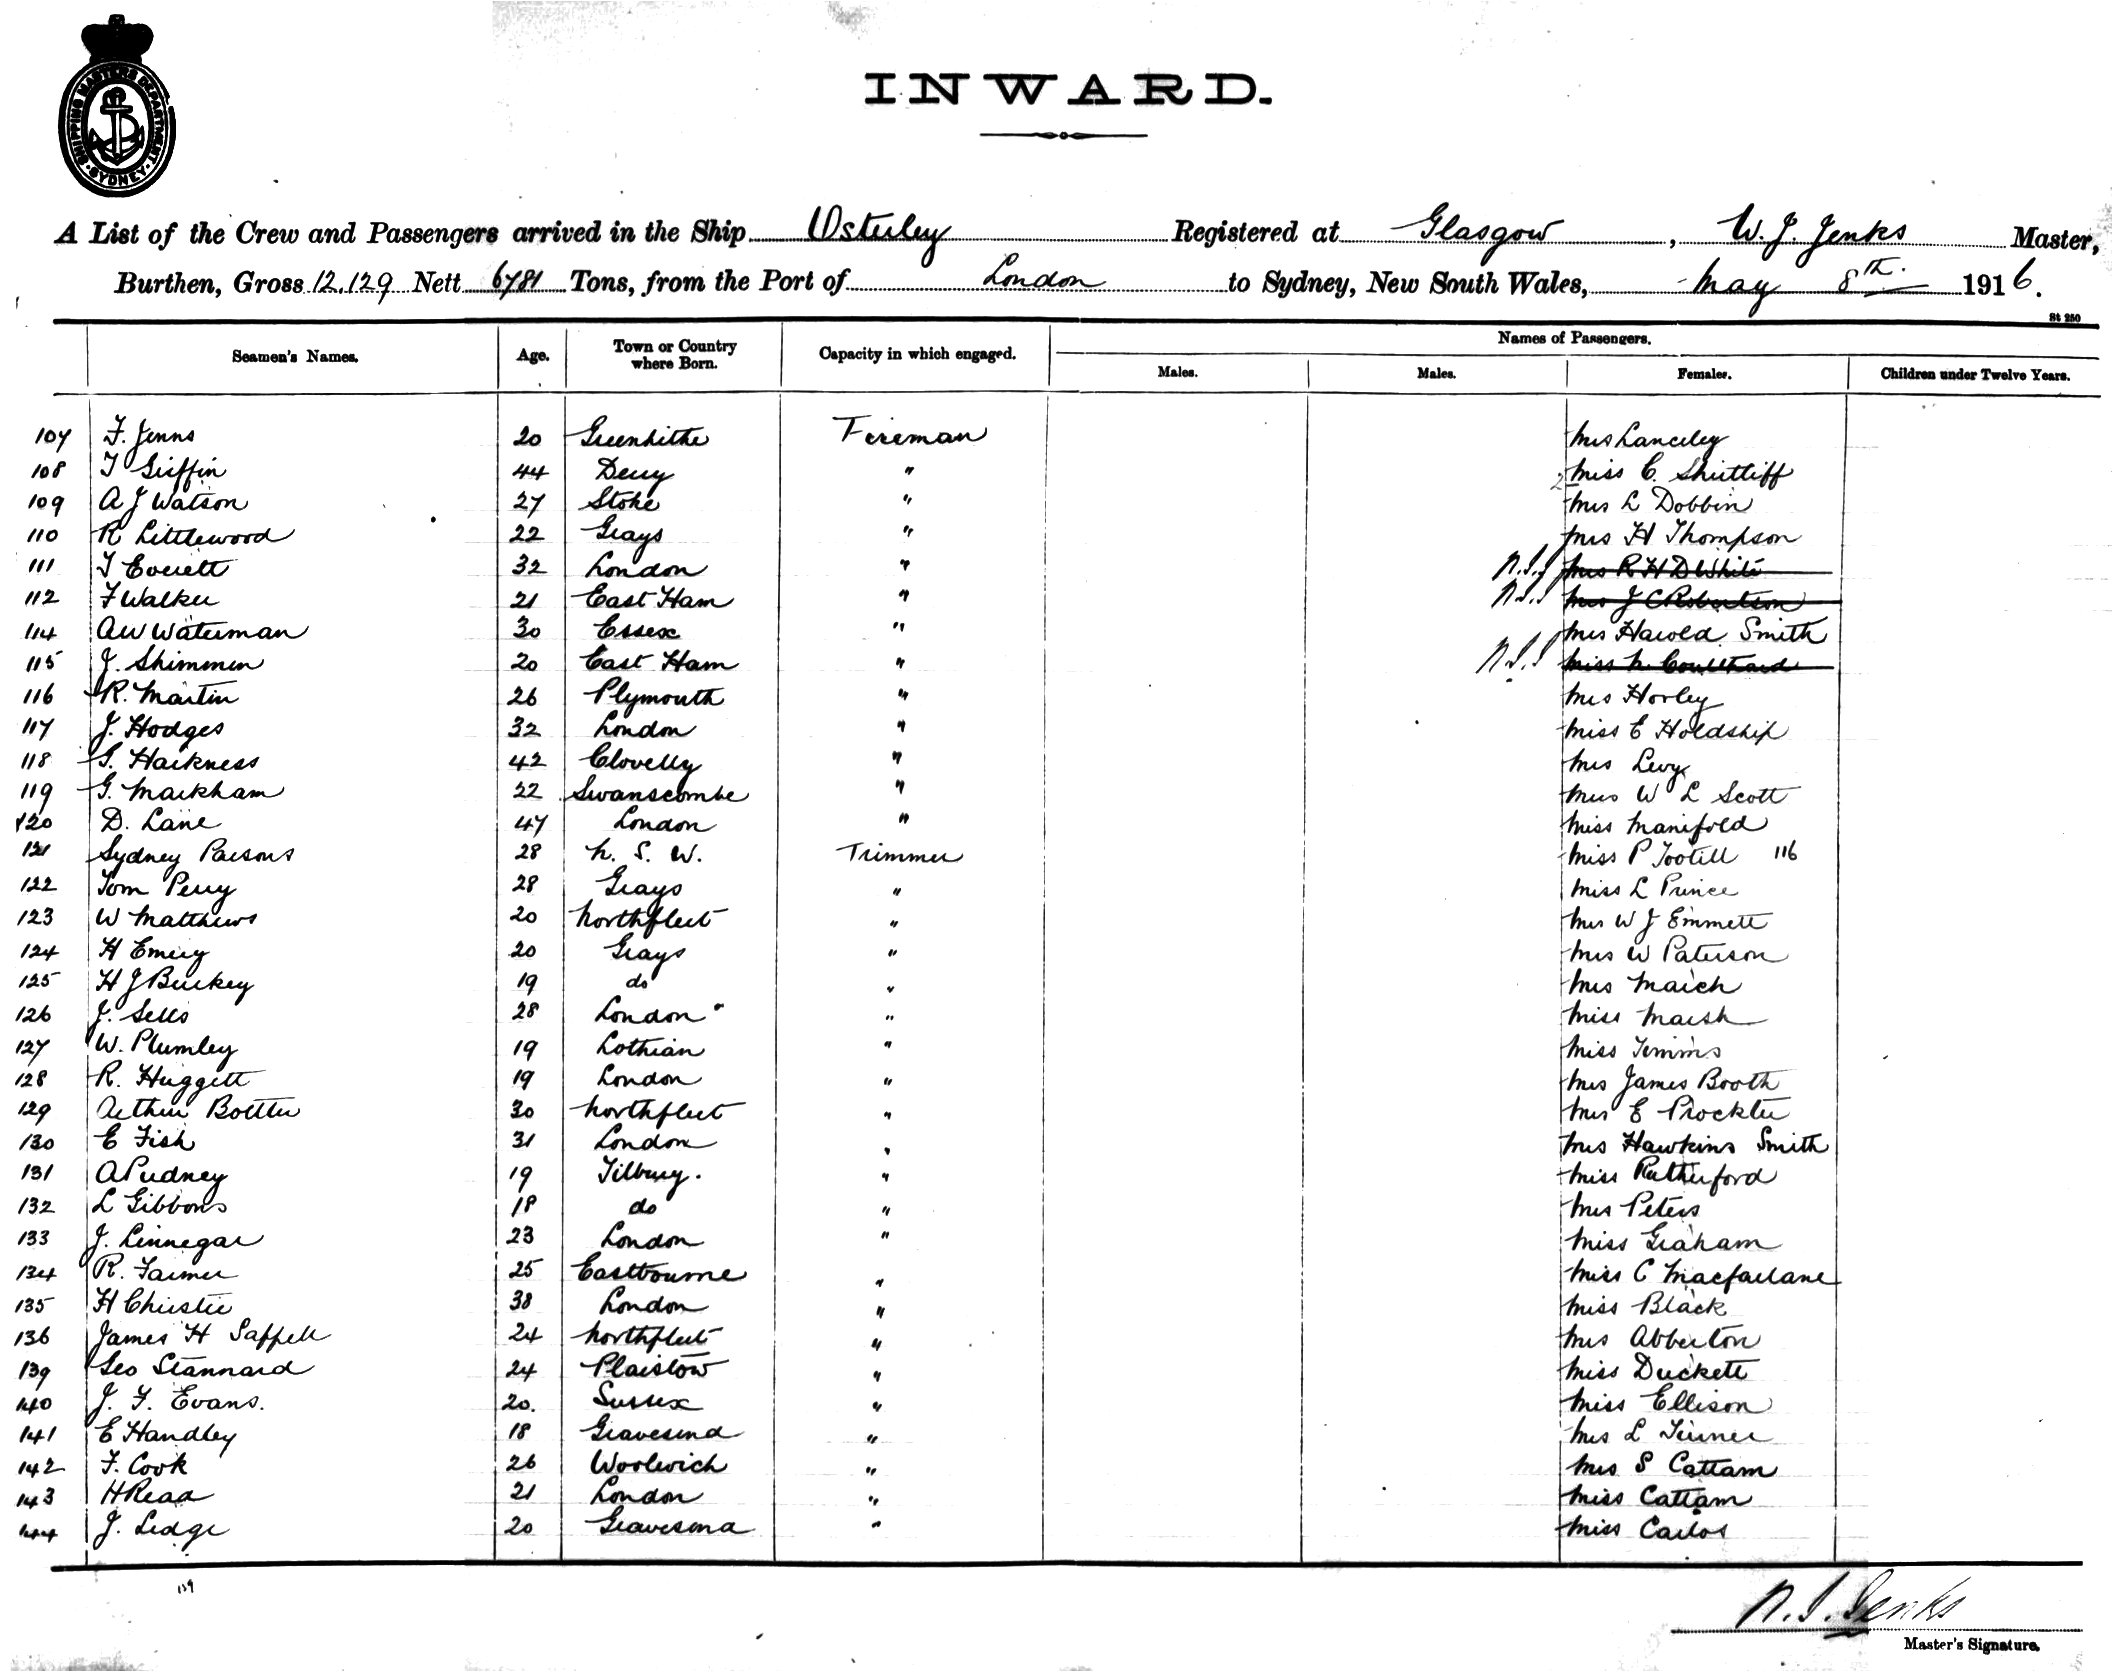 SHIPPING MASTERS DEPARTMENT SYDNEY
INWARD.
A List of the Crew and Passengers arrived in the Ship Osterley Registered at Glasgow, W. J. Jenks Master,
Burthen, Gross 12.129 Nett 6781 Tons, from the Port of London to Sydney, New South Wales, May 8th. 1916.
St 250
Seamen's Names. Age. Town or Country where Born. Capacity in which engaged. Names of Passengers.
Males. Males. Females. Children under Twelve Years.
107 F. Jenns 20 Greenhithe Fireman Mrs Lanceley
108 T Griffin 44 Derry " Miss C. Shirtliff
109 A J Watson 27 Stoke " Mrs L Dobbin
110 R Littlewood 22 Grays " Mrs H Thompson
111 T Everett 32 London " N.S.S Mrs R H D White
112 F Walker 21 East Ham " N.S.S Mrs J C Robertson
114 A W Waterman 30 Essex " Mrs Harold Smith
115 J. Shimmen 20 East Ham " N.S.S Miss N. Coulthard
116 R. Martin 26 Plymouth " Mrs Horley
117 J. Hodges 32 London " Miss E Holdship
118 G. Harkness 42 Clovelly " Mrs Levy
119 G. Markham 22 Swanscombe " Mrs W L Scott
120 D. Lane 47 London " Miss Manifold
121 Sydney Parsons 28 N. S. W. Trimmer Miss P Tootill 116
122 Tom Perry 28 Grays " Miss L Prince
123 W Matthews 20 Northfleet " Mrs W J Emmett
124 H Emery 20 Grays " Mrs W Paterson
125 H J Burkey 19 do " Mrs March
126 J. Sells 28 London " Miss Marsh
127 W. Plumley 19 Lothian " Miss Timms
128 R. Huggett 19 London " Mrs James Booth
129 Arthur Bottter 30 Northfleet " Mrs E Prockter
130 E Fish 31 London " Mrs Hawkins Smith
131 A Pudney 19 Tilbury. " Miss Rutherford
132 L Gibbons 18 do " Mrs Peters
133 J. Linnegar 23 London " Miss Graham
134 R. Farmer 25 Eastbourne " Miss C Macfarlane
135 H Christie 38 London " Miss Black
136 James H Saffell 24 Northfleet " Mrs Abberton
139 Geo Stannard 24 Plaistow " Miss Duckett
140 J. F. Evans. 20. Sussex " Miss Ellison
141 E Handley 18 Gravesend " Mrs L Turner
142 F. Cook 26 Woolwich " Mrs S Cattam
143 H Read 21 London " Miss Cattam
144 J. Ledge 20 Gravesend " Miss Carlos
139
W. J. Jenks
Master's Signature.